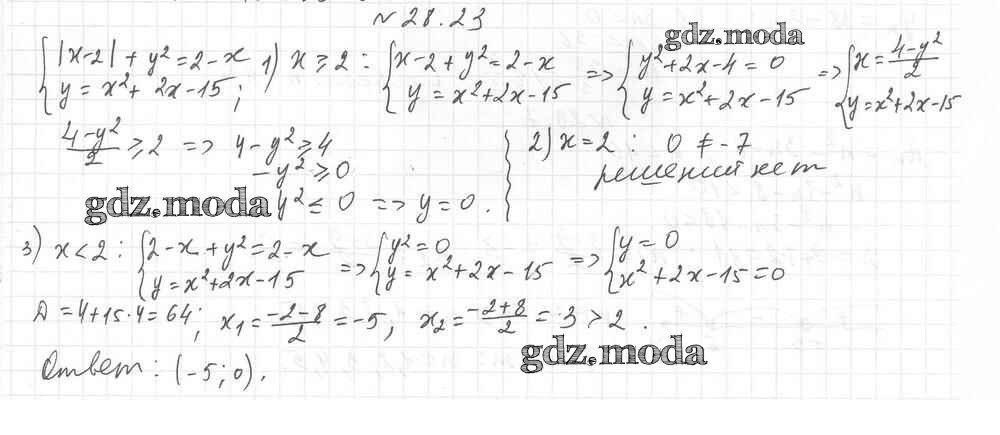 № 28.23
gdz.moda
{|x-2| + y² = 2-x
{y = x² + 2x - 15;
1) x ≥ 2 : {x-2+y² = 2-x
{y = x²+2x-15
=> {y²+2x-4 = 0
{y = x²+2x-15
=> {x = (4-y²)/2
{y = x²+2x-15
(4-y²)/2 ≥ 2 => 4-y² ≥ 4
-y² ≥ 0
y² ≤ 0 => y = 0.
gdz.moda
2) x = 2 : 0 ≠ -7
решений нет
3) x < 2 : {2-x+y² = 2-x
{y = x²+2x-15
=> {y² = 0
{y = x²+2x-15
=> {y = 0
{x²+2x-15 = 0
D = 4+15·4 = 64; x₁ = (-2-8)/2 = -5; x₂ = (-2+8)/2 = 3 > 2.
gdz.moda
Ответ: (-5; 0).